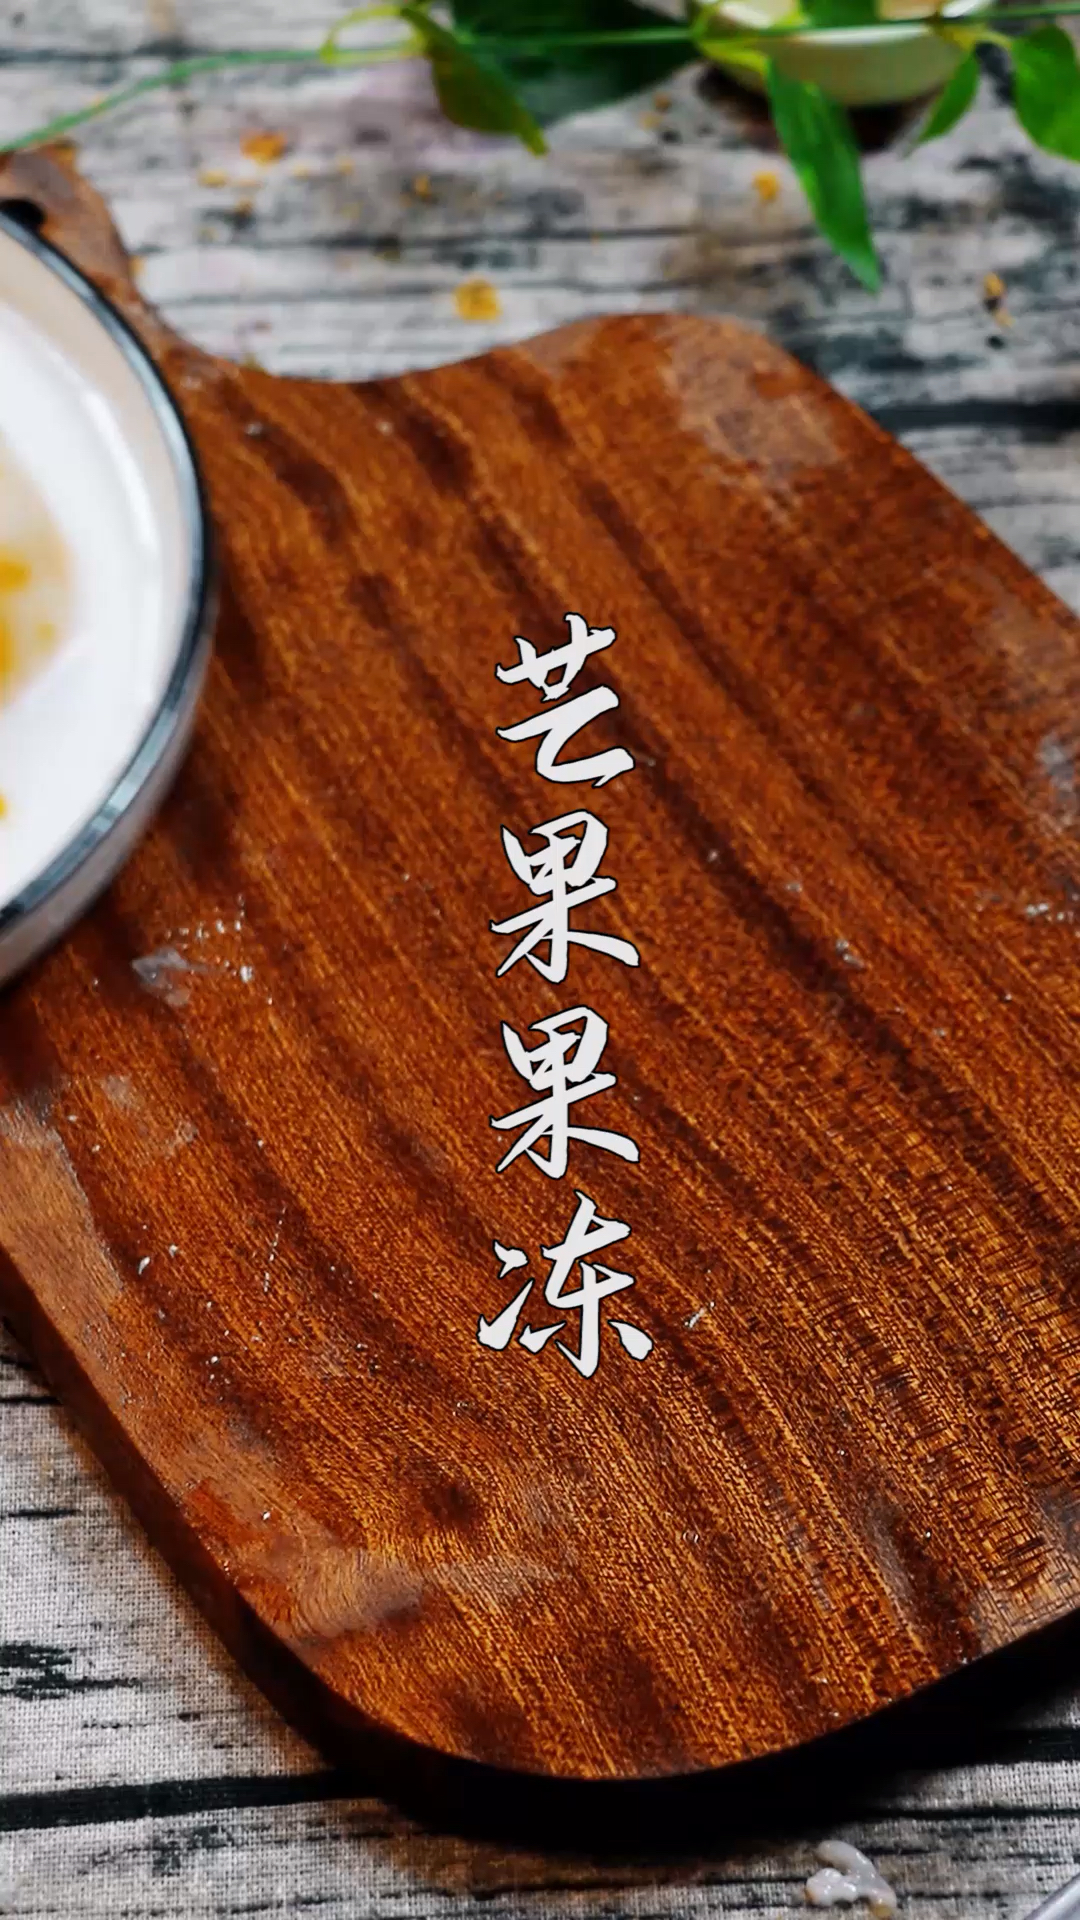 芒果果冻